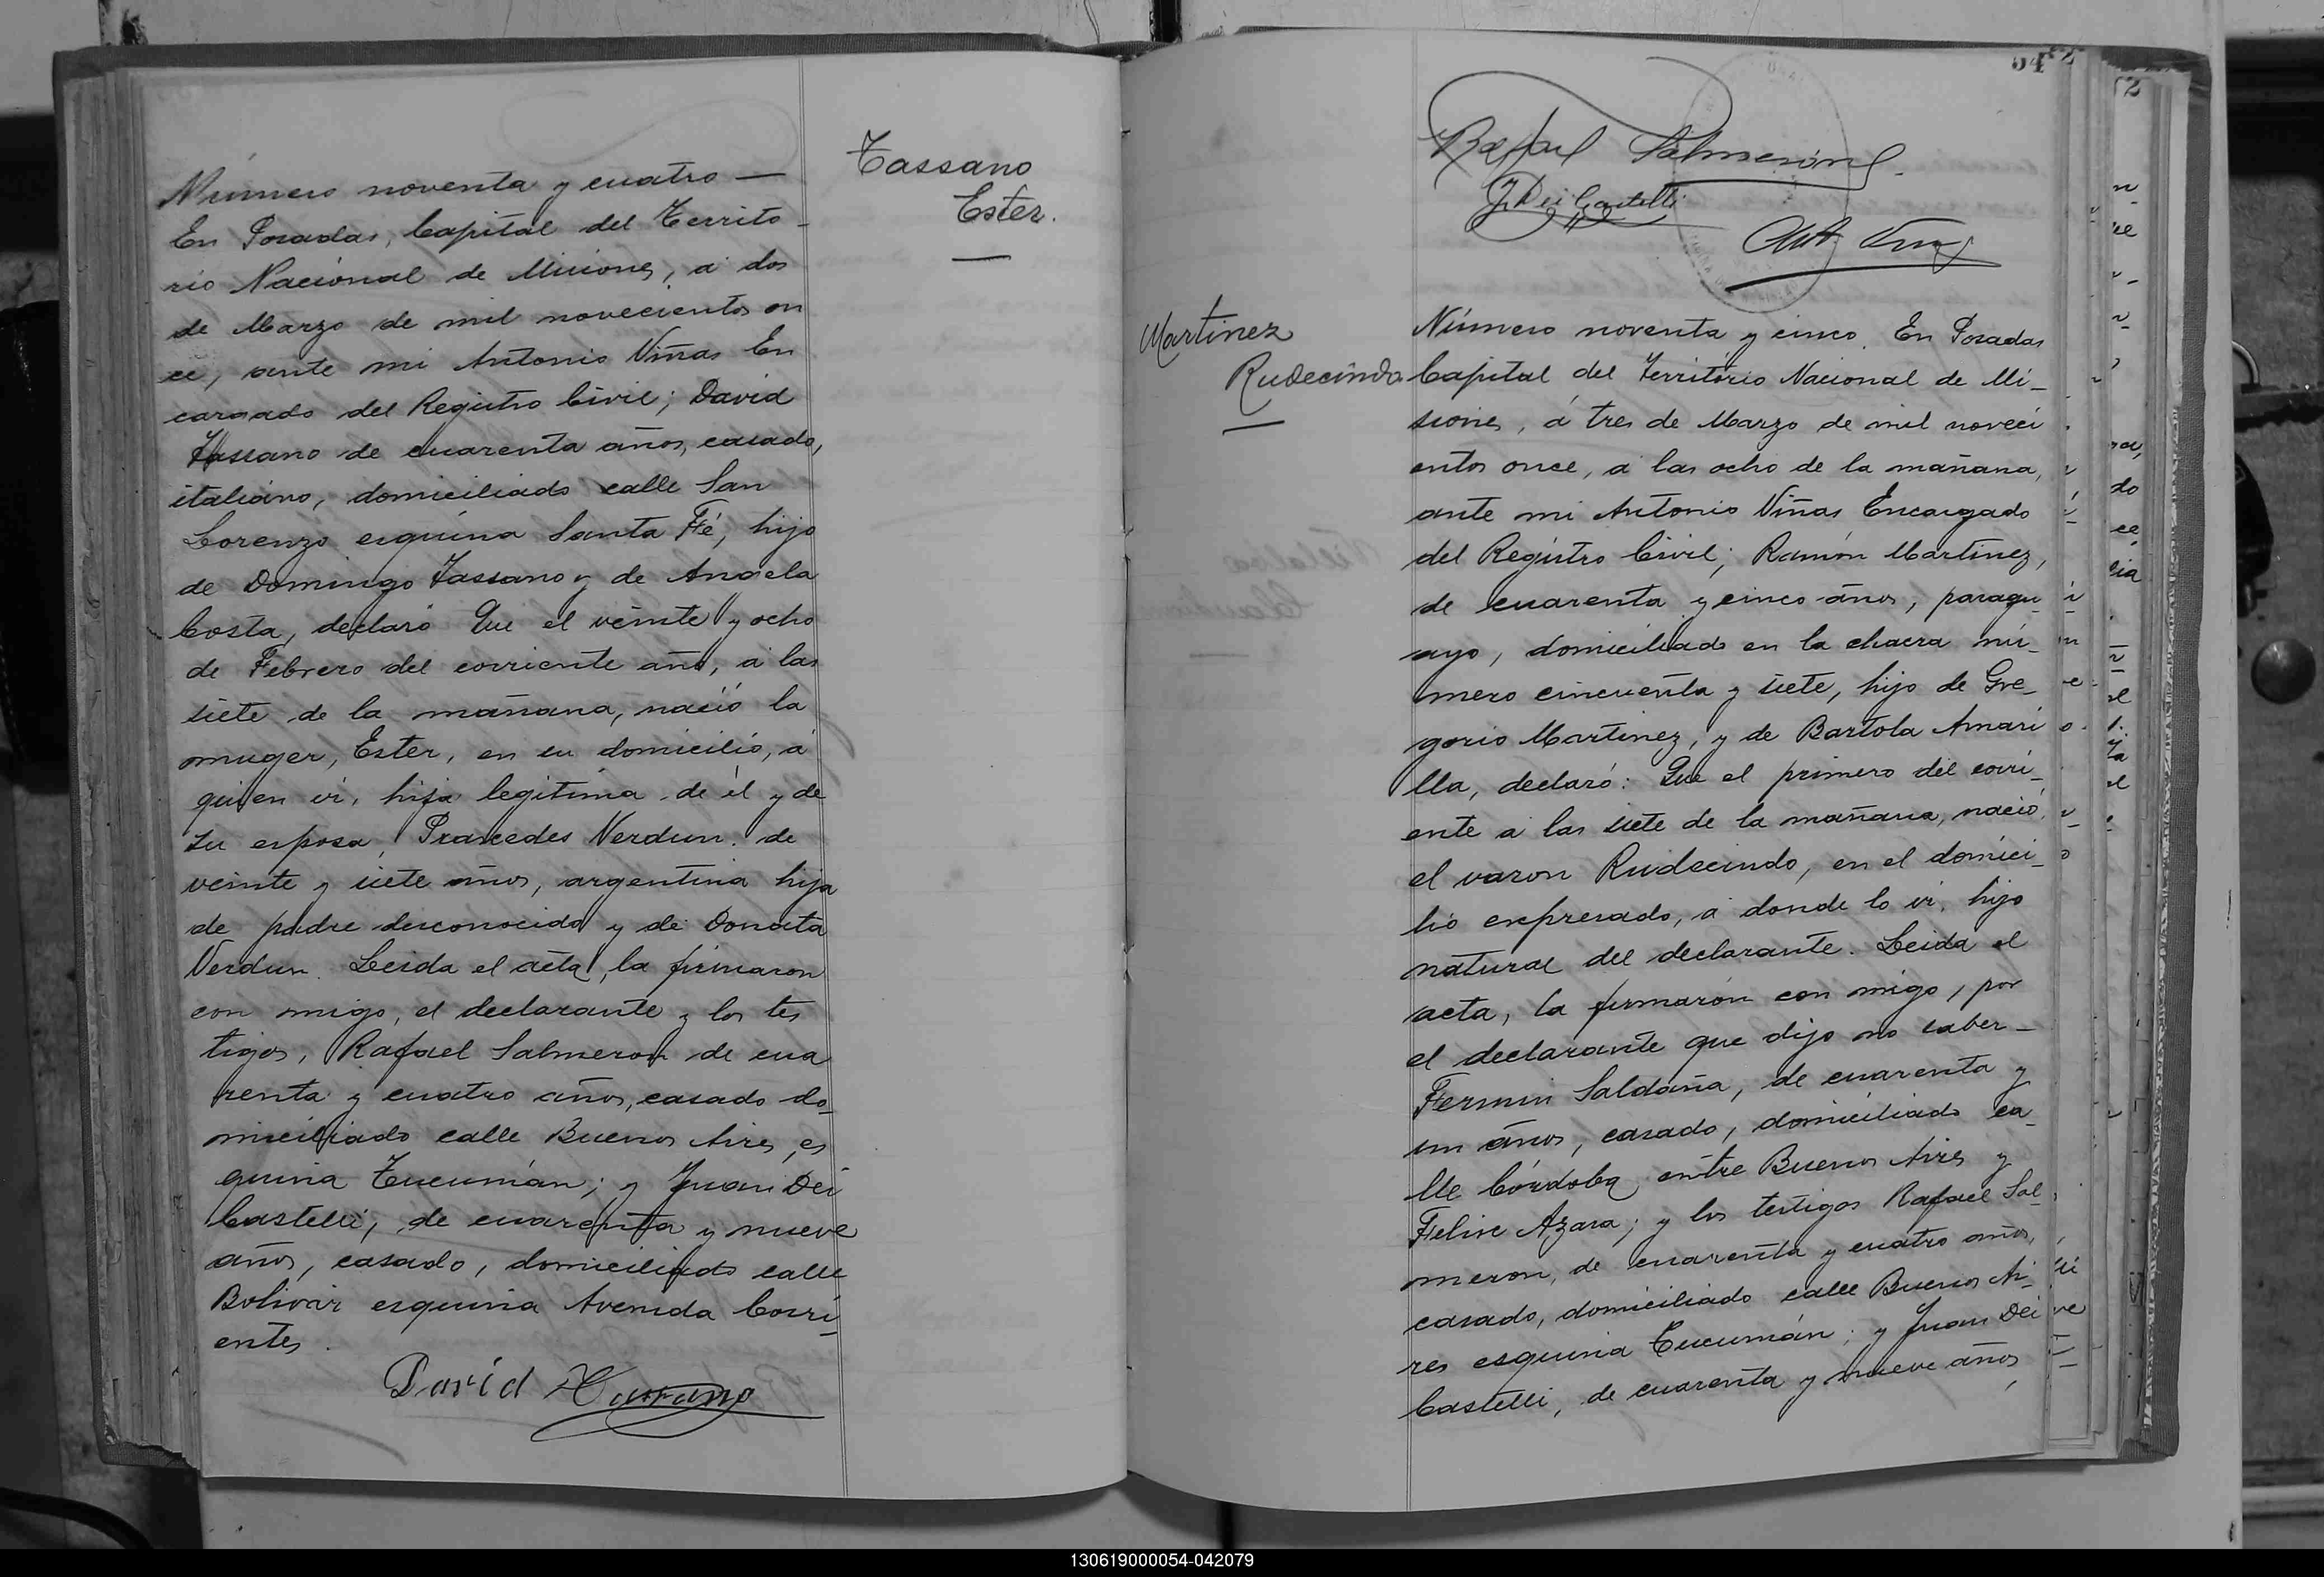 Número noventa y cuatro —
En Posadas, Capital del Territo-
rio Nacional de Misiones, á dos
de Marzo de mil novecientos on
ce, ante mi Antonio Viñas En
cargado del Registro Civil; David
Tassano de cuarenta años, casado,
italiano, domiciliado calle San
Lorenzo esquina Santa Fé, hijo
de Domingo Tassano y de Angela
Costa, declaró Que el veinte y ocho
de Febrero del corriente año, á las
siete de la mañana, nació la
muger, Ester, en su domicilio, á
quien vi, hija legitima de él y de
su esposa Praxedes Verdun de
veinte y siete años, argentina hija
de padre desconocido y de Donata
Verdun. Leida el acta, la firmaron
con migo, el declarante y los tes
tigos, Rafael Salmeron de cua
renta y cuatro años, casado do-
miciliado calle Buenos Aires, es
quina Tucumán; y Juan Dei
Castelli, de cuarenta y nueve
años, casado, domiciliado calle
Bolivar esquina Avenida Corri-
entes.
David Tassano
Tassano
Ester.
54
Rafael Salmerón
J. Dei Castelli
Ant Viñas
Martinez
Rudecindo
Número noventa y cinco. En Posadas
Capital del Territorio Nacional de Mi-
siones, á tres de Marzo de mil noveci
entos once, á las ocho de la mañana,
ante mi Antonio Viñas Encargado
del Registro Civil; Ramón Martinez,
de cuarenta y cinco años, paragu-
ayo, domiciliado en la chacra nú-
mero cincuenta y siete, hijo de Gre-
gorio Martinez, y de Bartola Amari
lla, declaró: Que el primero del corri-
ente á las siete de la mañana, nació
el varon Rudecindo, en el domici-
lio expresado, á donde lo vi, hijo
natural del declarante. Leida el
acta, la firmarón con migo, por
el declarante que dijo no saber-
Fermin Saldaña, de cuarenta y
un años, casado, domiciliado ca-
lle Córdoba entre Buenos Aires y
Felix Azara; y los testigos Rafael Sal-
meron, de cuarenta y cuatro años,
casado, domiciliado calle Buenos Ai-
res esquina Tucumán; y Juan Dei
Castelli, de cuarenta y nueve años,
130619000054-042079